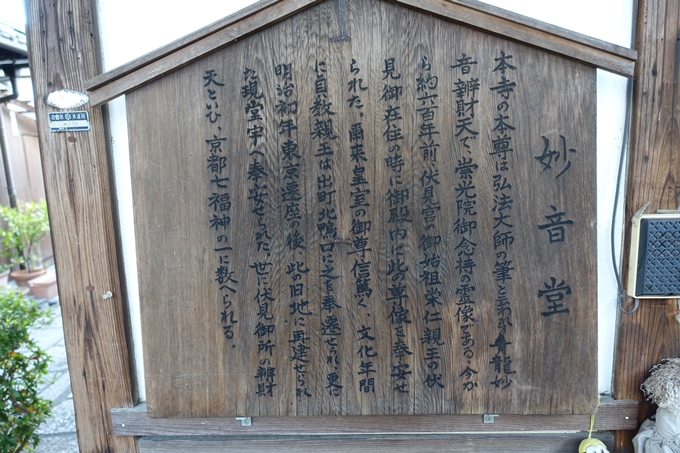 妙音堂
本寺の本尊は弘法大師の筆と云われ青龍妙
音辨財天で、崇光院御念持の霊像である。今か
ら約六百年前伏見宮の御始祖栄仁親王の伏
見御在住の時に御殿内に此の尊像を奉安せ
られた。爾来皇室の御尊信篤く、文化年間
に貞敬親王は出町北鴨口に之を奉遷せられ、更に
明治初年東京遷座の後、此旧地に再建せられ
た現堂宇へ奉安せられた。世に伏見御所の辨財
天といひ、京都七福神の一に数へられる。